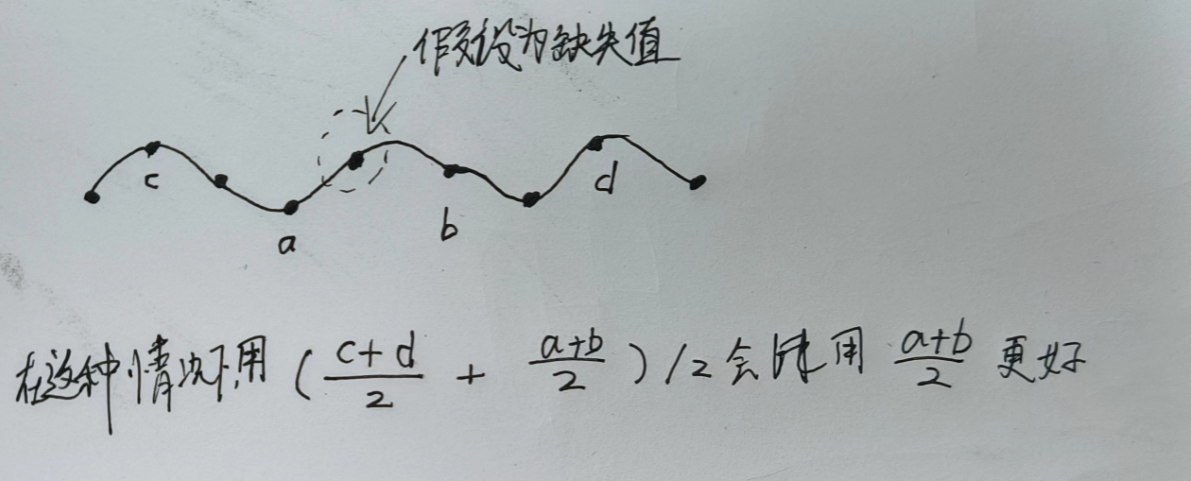 假设为缺失值
c
d
a
b
在这种情况下用 (\frac{c+d}{2} + \frac{a+b}{2})/2 会比用 \frac{a+b}{2} 更好